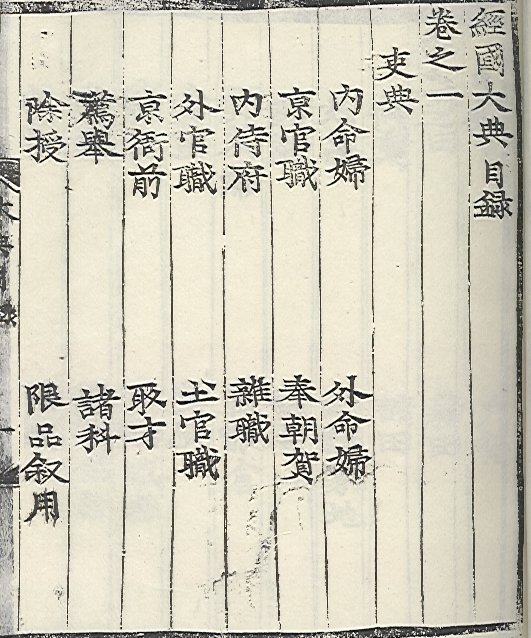 經國大典目録
卷之一
吏典
內命婦 外命婦
京官職 奉朝賀
內侍府 雜職
外官職 土官職
京衙前 取才
薦舉 諸科
除授 限品叙用